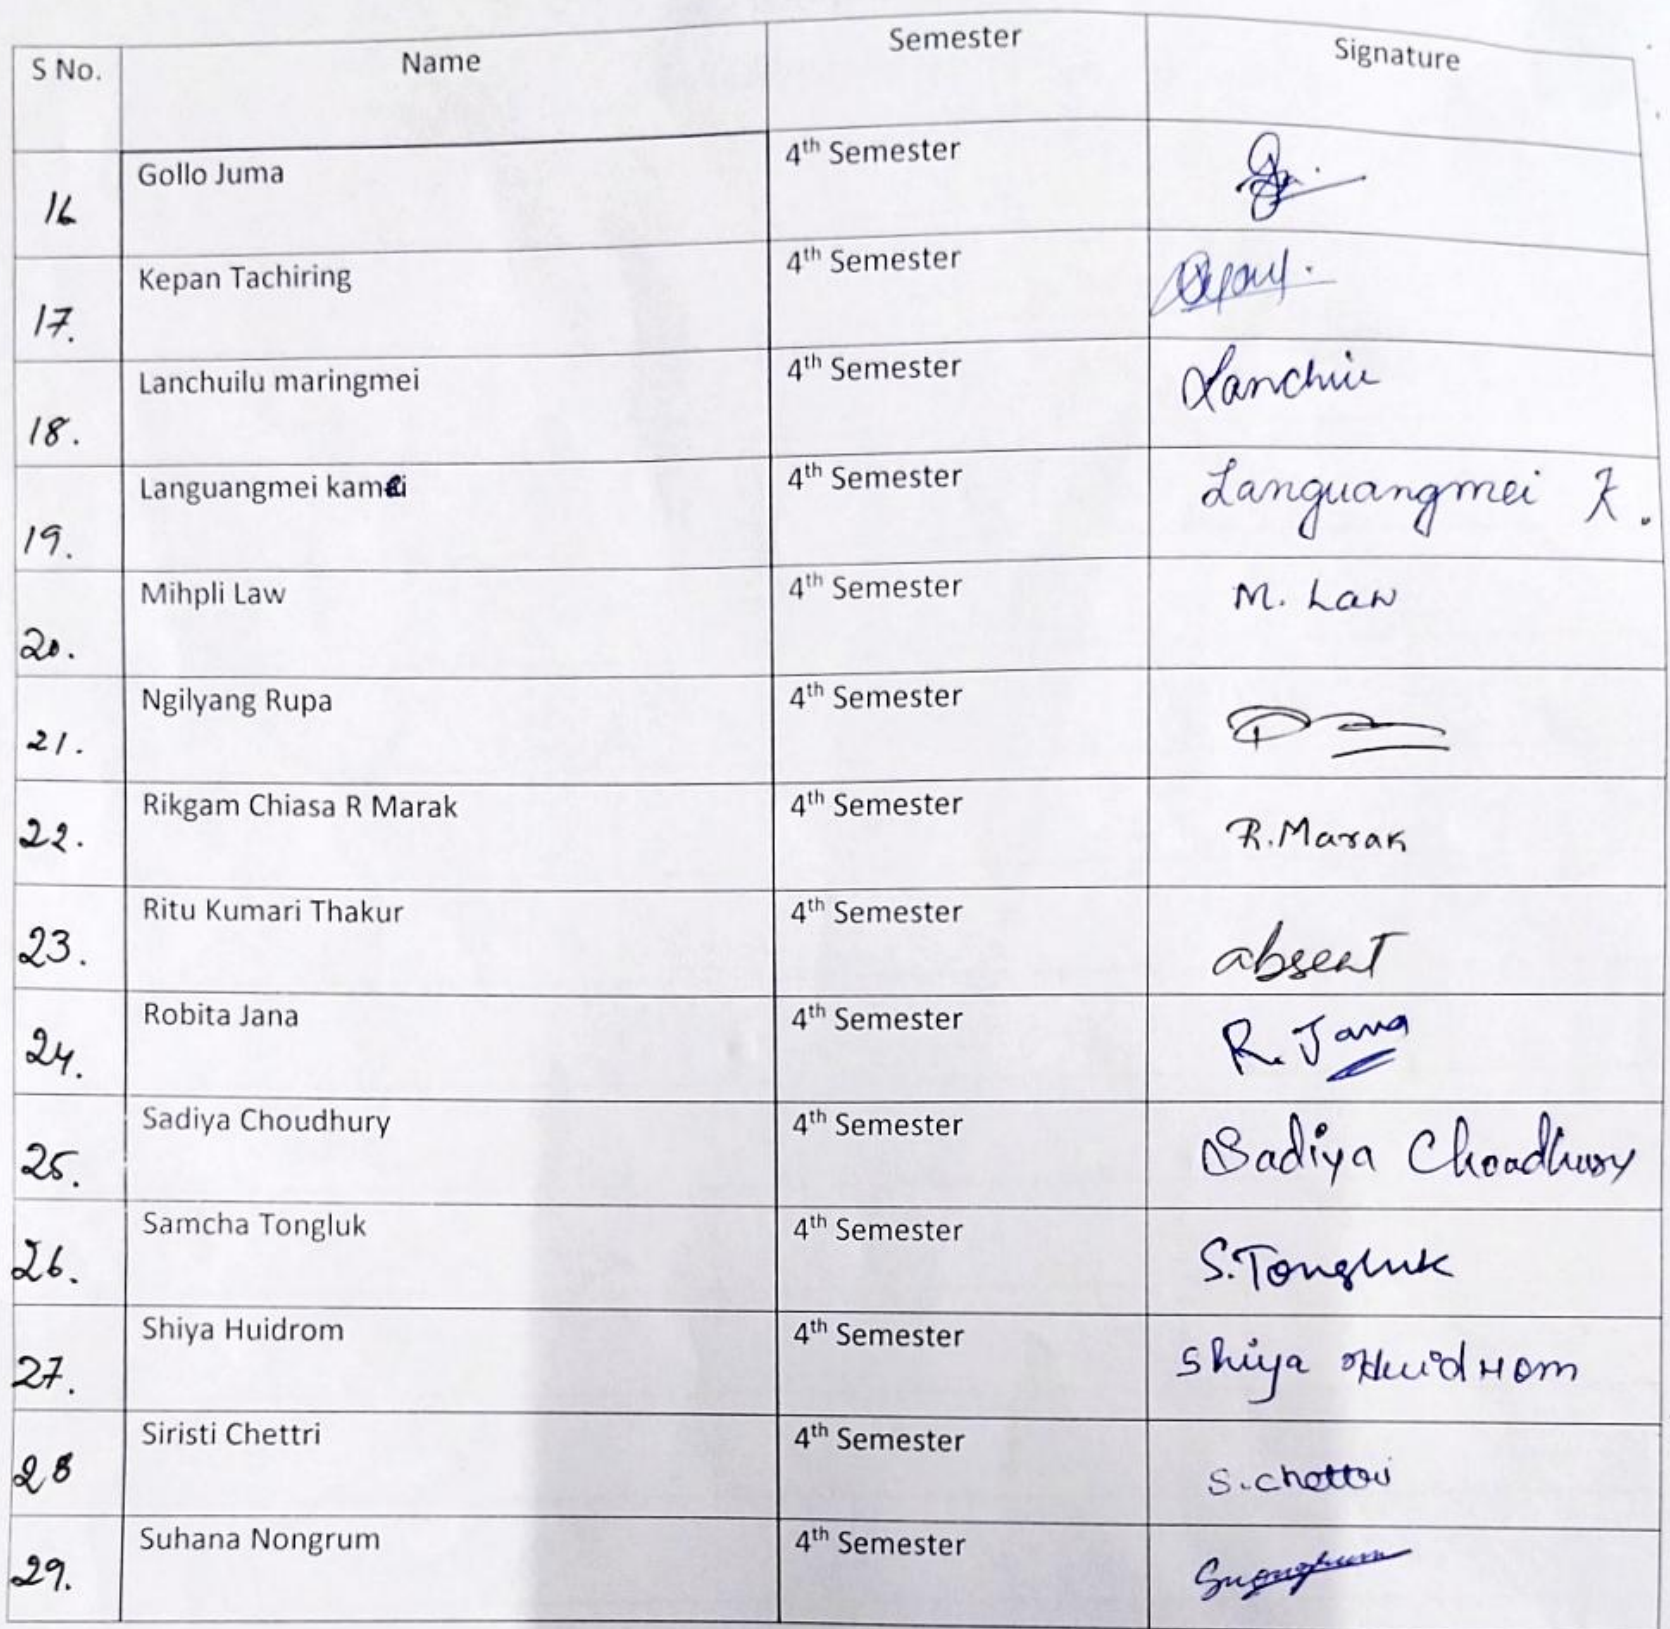 S No. Name Semester Signature
16 Gollo Juma 4th Semester
17. Kepan Tachiring 4th Semester
18. Lanchuilu maringmei 4th Semester Lanchui
19. Languangmei kamei 4th Semester Languangmei K.
20. Mihpli Law 4th Semester M. Law
21. Ngilyang Rupa 4th Semester
22. Rikgam Chiasa R Marak 4th Semester R.Marak
23. Ritu Kumari Thakur 4th Semester absent
24. Robita Jana 4th Semester R. Jana
25. Sadiya Choudhury 4th Semester Sadiya Choudhury
26. Samcha Tongluk 4th Semester S.Tongluk
27. Shiya Huidrom 4th Semester Shiya Huidrom
28 Siristi Chettri 4th Semester S.chettri
29. Suhana Nongrum 4th Semester